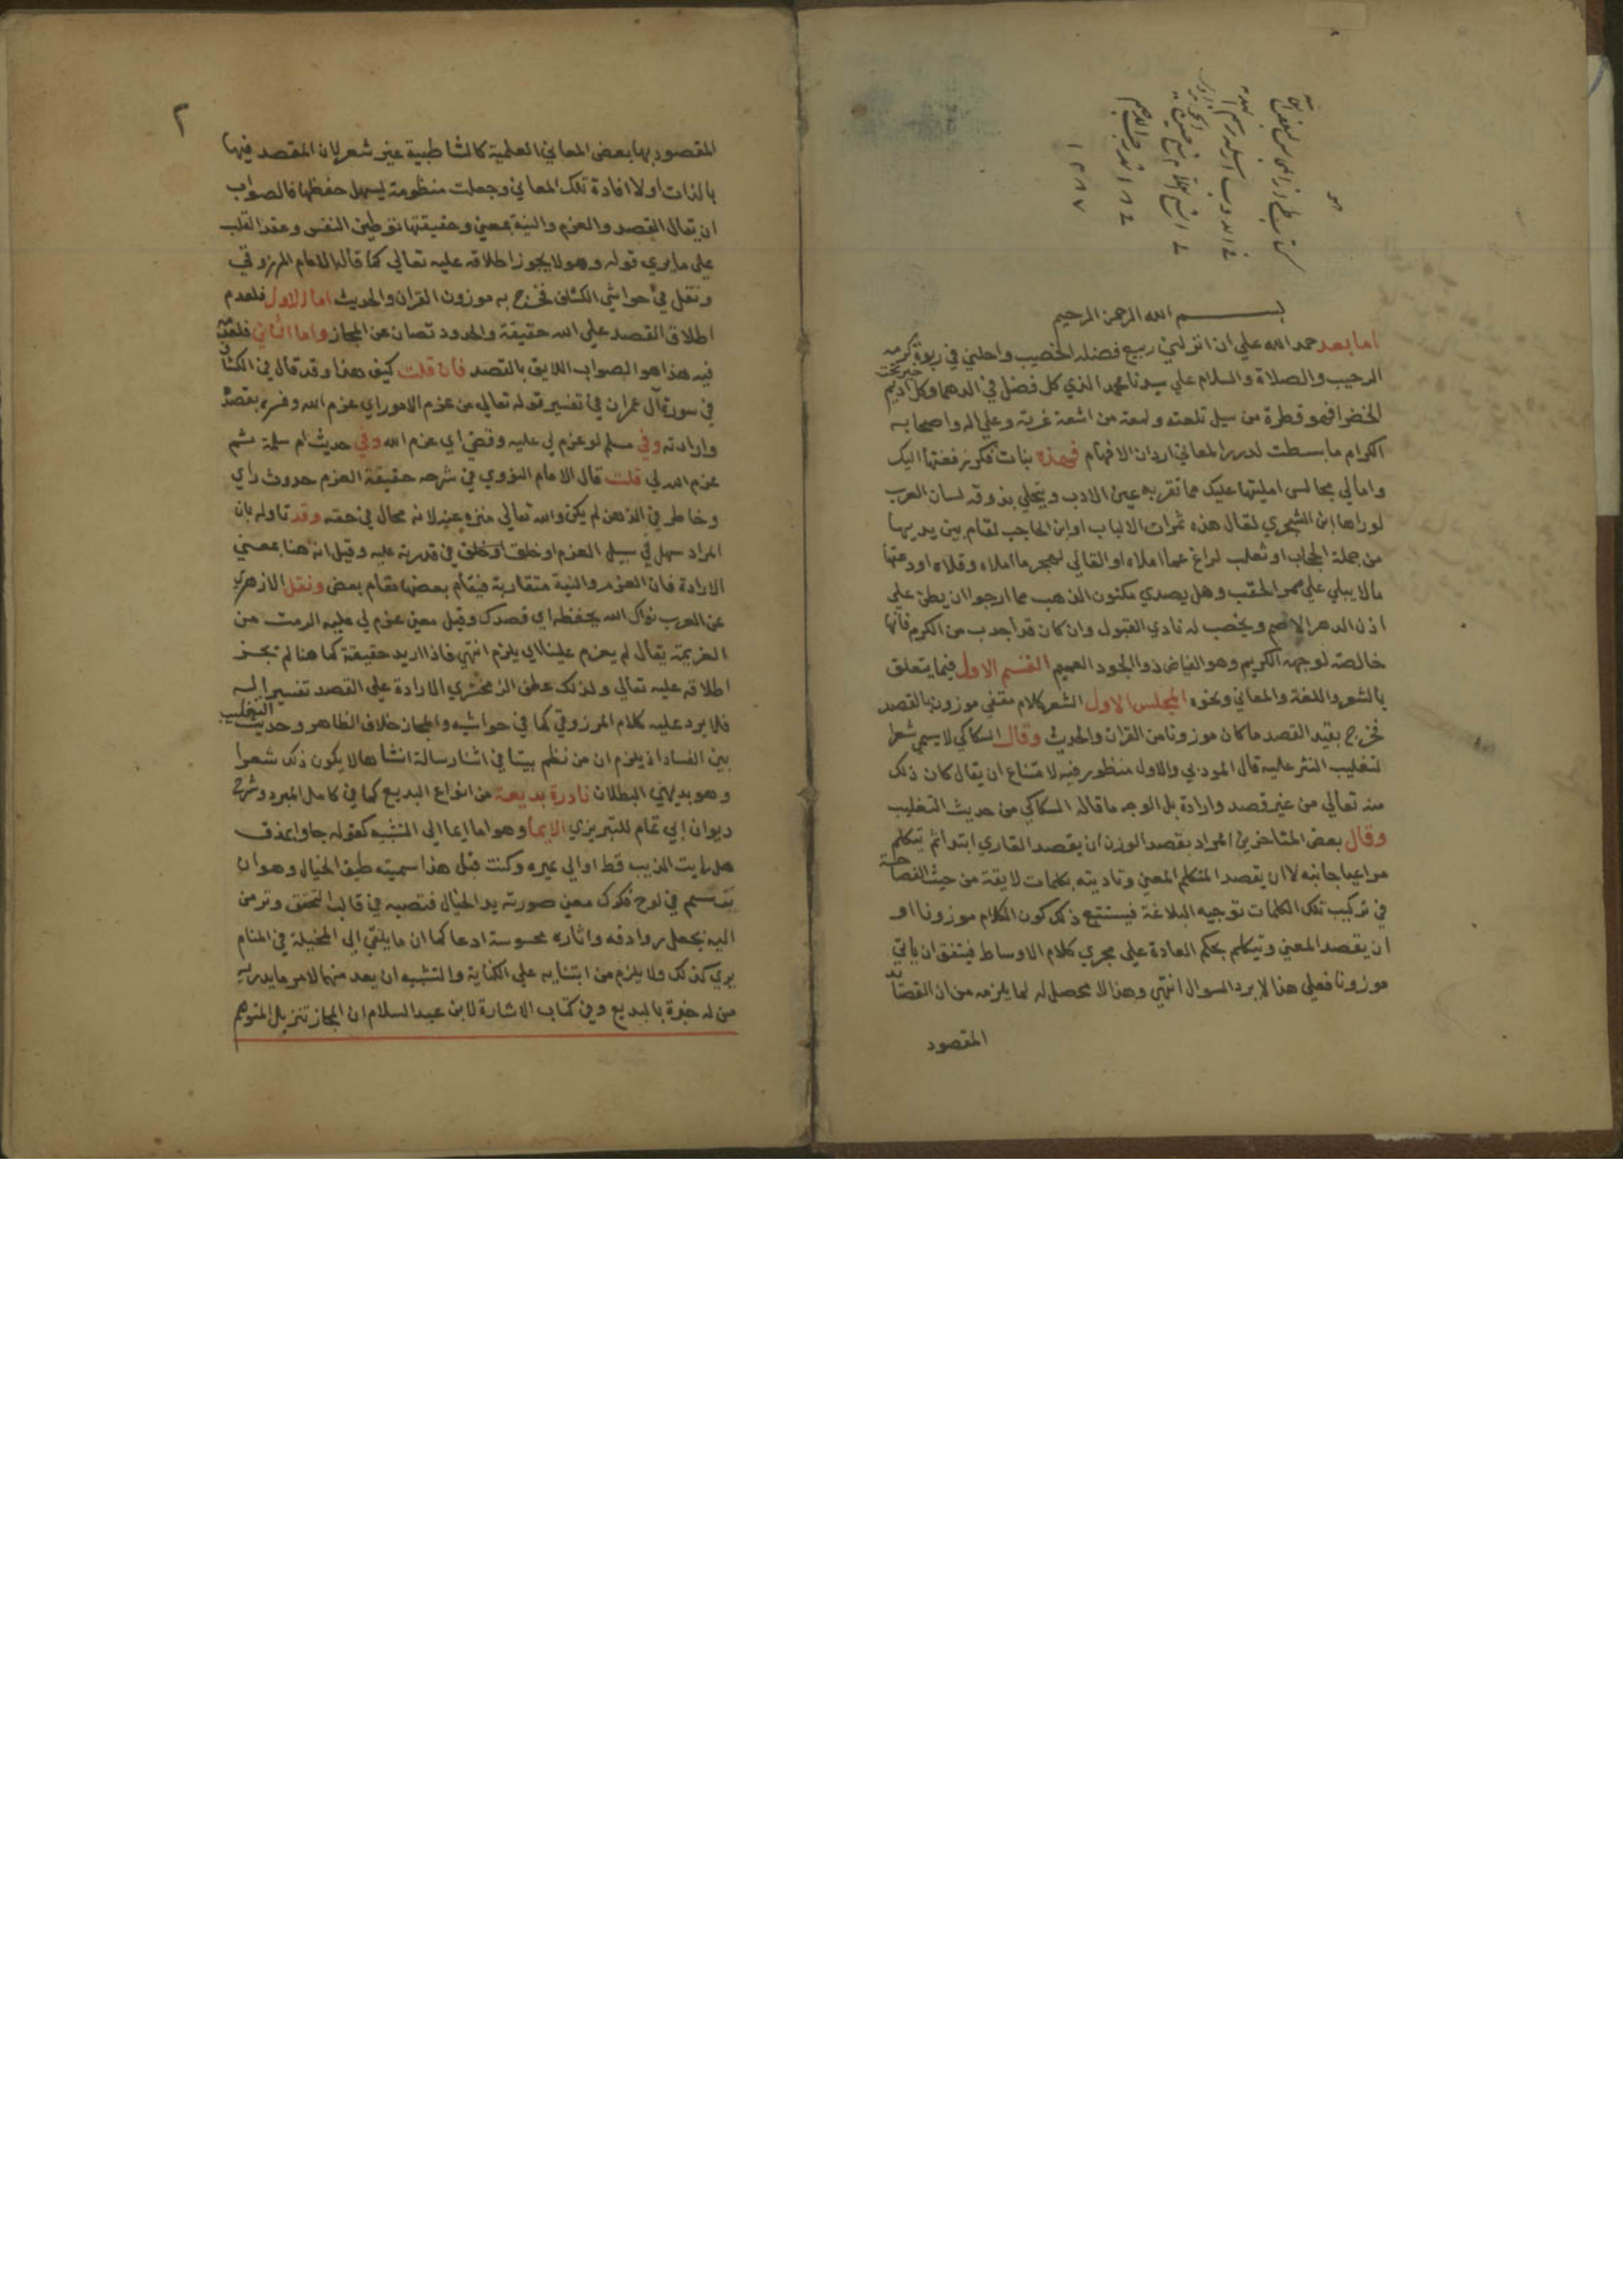 بسم الله الرحمن الرحيم
اما بعد حمد الله علي ان انزلني ربيع فضله الخصيب واحلني في ربوة كرمه
الرحيب والصلاة والسلام علي سيدنا محمد الذي كل فضل في الدهما وكل خير تحت اديم
الخضرا فهو قطرة من سيل تلعته ولمعة من اشعة غرته وعلي اله واصحابه
الكرام ما بسطت لدرر المعاني اردان الافهام فهذه بنات فكر زففتها اليك
وامالي مجالس امليتها عليك مما تقر به عين الادب ويتحلي بذوقه لسان العرب
لو راها ابن الشجري لقال هذه ثمرات الالباب او ابن الحاجب لقام بين يديها
من جملة الحجاب او ثعلب لراغ عما املاه او القالي لهجر ما املاه وقلاه اودعتها
ما لا يبلي علي ممر الحقب وهل يصدي مكنون الذهب مما ارجوا ان يطن علي
اذن الدهر الاصم ويخصب له نادي القبول وان كان قد اجدب من الكرم فانها
خالصة لوجهه الكريم وهو الفياض ذو الجود العميم القسم الاول فيما يتعلق
بالشعر واللغة والمعاني ونحوه المجلس الاول الشعر كلام مقفي موزون بالقصد
فخرج بقيد القصد ما كان موزونا من القران والحديث وقال السكاكي لا يسمي شعرا
لتغليب النثر عليه قال الموذني والاول منظور فيه لامتناع ان يقال كان ذلك
منه تعالي من غير قصد وارادة بل الوجه ما قاله السكاكي من حديث التغليب
وقال بعض المتاخرين المراد بقصد الوزن ان يقصد القاري ابتدا ثم يتكلم
مراعيا جانبه لا ان يقصد المتكلم المعني وتاديته بكلمات لايقة من حيث الفصاحة
في تركيب تلك الكلمات توجبه البلاغة فيستتبع ذلك كون الكلام موزونا او
ان يقصد المعني ويتكلم بحكم العادة علي مجري كلام الاوساط فيتفق ان ياتي
موزونا فعلي هذا لا يرد السوال انتهي وهذا لا محصل له لما يلزمه من ان القصائد
المقصود
٢
المقصود بها بعض المعاني العلمية كالشاطبية غير شعر لان المقصد فيها
بالذات اولا افادة تلك المعاني وجعلت منظومة ليسهل حفظها فالصواب
ان يقال القصد والعزم والنية بمعني وحقيقتها توطين النفس وعقد القلب
علي ما يري قوله وهو لا يجوز اطلاقه عليه تعالي كما قاله الامام المرزوقي
ونقل في حواشي الكشاف فخرج به موزون القران والحديث اما الاول فلعدم
اطلاق القصد علي الله حقيقة والحدود تصان عن المجاز واما الثاني فلعدمه
فيه هذا هو الصواب اللايق بالقصد فان قلت كيف هذا وقد قال في الكشاف
في سورة آل عمران في تفسير قوله تعالي من عزم الامور اي عزم الله وفسره بقصده
وارادته وفي مسلم لو عزم لي عليه وقضي اي عزم الله وفي حديث ام سلمة ثم
عزم الله لي قلت قال الامام النووي في شرحه حقيقة العزم حدوث راي
وخاطر في الذهن لم يكن والله تعالي منزه عنه لانه محال في حقه وقد تاوله بان
المراد سهل لي سبيل العزم او خلق في قدرة عليه وقيل انه هنا بمعني
الارادة فان العزم والنية متقاربة فيقام بعضها مقام بعض ونقل الازهري
عن العرب نواك الله بحفظه اي قصدك وقيل معني عزم لي عليه الزمت من
العزيمة يقال لم يعزم علينا اي يلزم انتهي فاذا اريد حقيقة كما هنا لم تجز
اطلاقه عليه تعالي ولذلك عطف الزمخشري الارادة علي القصد تفسيرا له
فلا يرد عليه كلام المرزوقي كما في حواشيه والمجاز خلاف الظاهر وحديث التغليب
بين الفساد اذ يلزم ان من نظم بيتا في اثنا رسالة انشاها لا يكون ذلك شعرا
وهو بديهي البطلان نادرة بديعة من انواع البديع كما في كامل المبرد وشرح
ديوان ابي تمام للتبريزي الايما وهو اما ايما الي التشبيه كقوله جاوا بمذق
هل رايت الذيب قط او الي غيره وكنت قبل هذا سميته طيف الخيال وهو ان
يرتسم في لوح فكرك معني صورته يد الخيال فتصبه في قالب التحقق وترمز
اليه بجعل روادفه واثاره محسوسة ادعا كما ان ما يلقي الي المخيلة في المنام
يري كذلك ولا يلزم من ابتنايه علي الكناية والتشبيه ان يعد منهما لامر ما يدريه
من له خبرة بالبديع وفي كتاب الاشارة لابن عبد السلام ان المجاز تنزيل المتوهم